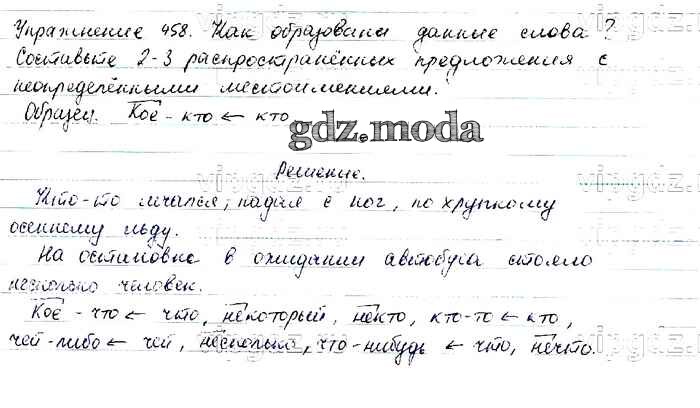 Упражнение 458. Как образованы данные слова?
Составьте 2-3 распространённых предложения с
неопределёнными местоимениями.
Образец. Кое-кто ← кто
gdz.moda
Решение.
Кто-то мчался, падая с ног, по хрупкому
осеннему льду.
На остановке в ожидании автобуса стояло
несколько человек.
Кое-что ← что, некоторый, некто, кто-то ← кто,
чей-либо ← чей, несколько, что-нибудь ← что, нечто.